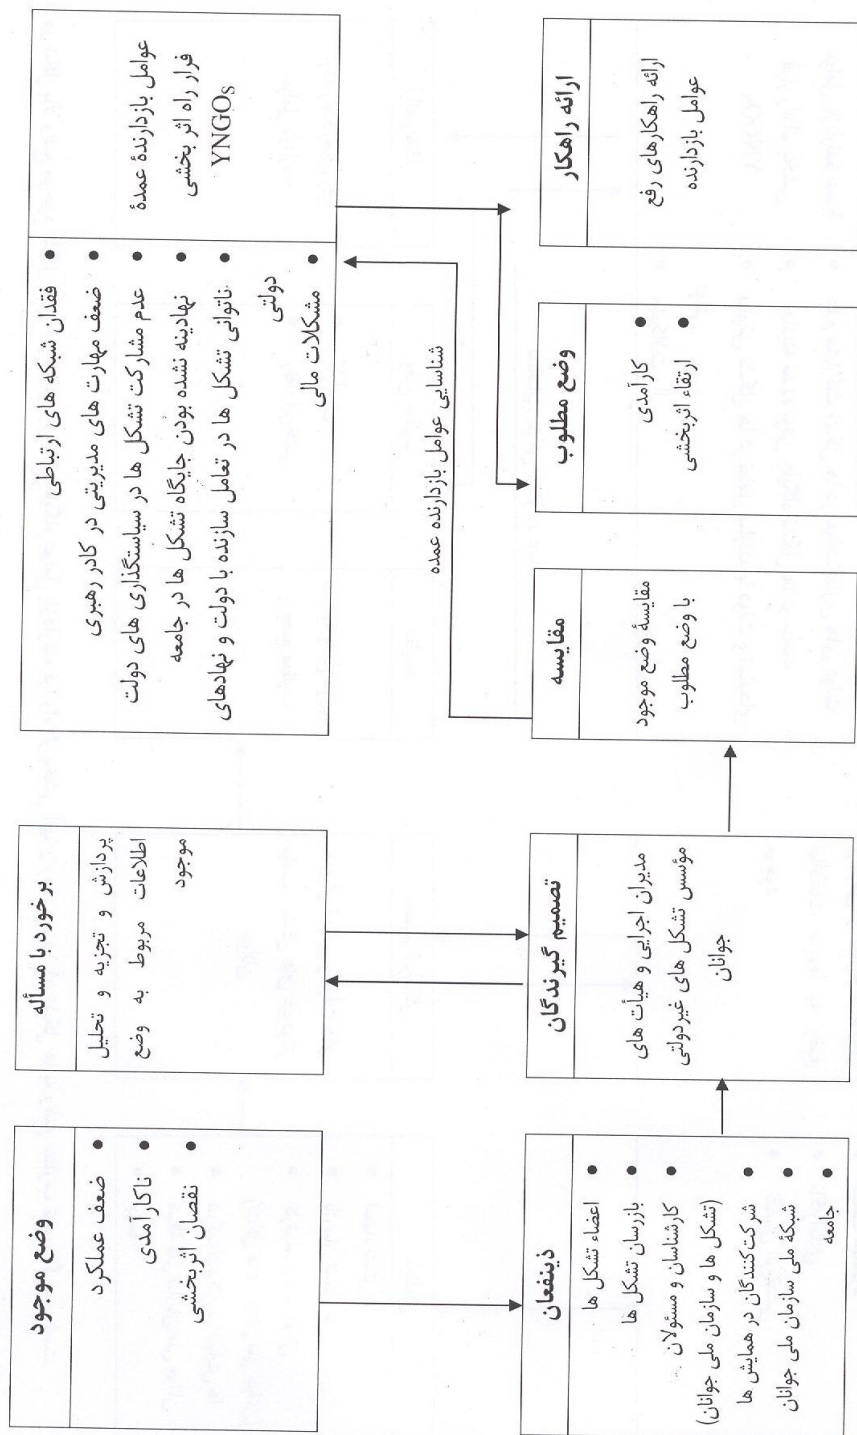 وضع موجود
ضعف عملکرد
ناکارآمدی
نقصان اثربخشی
برخورد با مسأله
پردازش و تجزیه و تحلیل
اطلاعات مربوط به وضع
موجود
فقدان شبکه های ارتباطی
ضعف مهارت های مدیریتی در کادر رهبری
عدم مشارکت تشکل ها در سیاستگذاری های دولت
نهادینه نشده بودن جایگاه تشکل ها در جامعه
ناتوانی تشکل ها در تعامل سازنده با دولت و نهادهای
دولتی
مشکلات مالی
عوامل بازدارندۀ عمدۀ
فرار راه اثر بخشی
YNGOs
شناسایی عوامل بازدارنده عمده
ذینفعان
اعضاء تشکل ها
بازرسان تشکل ها
کارشناسان و مسئولان
(تشکل ها و سازمان ملی جوانان)
شرکت‌کنندگان در همایش ها
شبکۀ ملی سازمان ملی جوانان
جامعه
تصمیم گیرندگان
مدیران اجرایی و هیأت های
مؤسس تشکل های غیردولتی
جوانان
مقایسه
مقایسۀ وضع موجود
با وضع مطلوب
وضع مطلوب
کارآمدی
ارتقاء اثربخشی
ارائه راهکار
ارائه راهکارهای رفع
عوامل بازدارنده